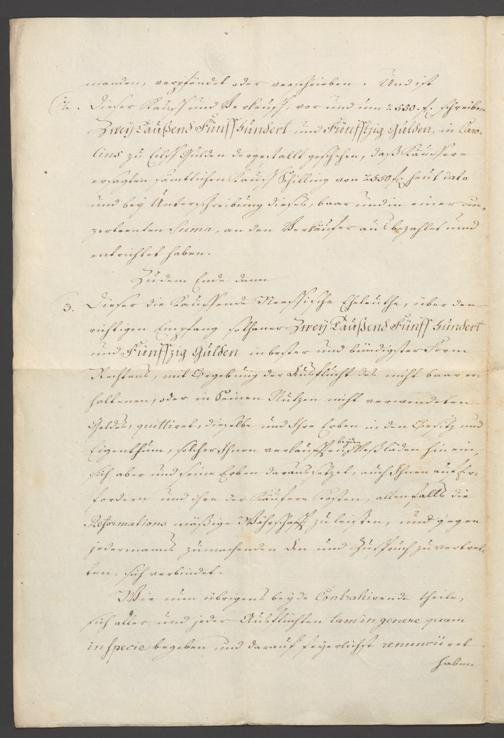 manden, verpfändet oder verschrieben. Und ist
2. Dieser Kauff und Verkauff, vor und um 2550 f. schreibe
Zwey Taußend Fünff Hundert und Fünffzig Gulden, in Caro-
lins zu Eilff Gulden dergestallt geschehen, daß Käuffere
ersagten sämtlichen Kauff Schilling von 2550 f. heut dato
und bey Unterschreibung dieses, baar und in einer un-
zertrenten Suma, an den Verkäufer ausbezahlet und
entrichtet haben.
Zu dem Ende dann
3. Dieser die Kauffende Eheleuthe, über den
richtigen Empfang sothaner Zwey Taußend Fünff Hundert
und Fünffzig Gulden in bester und bündigster Form
Rechtens, mit Begebung der Ausflucht des nicht baar er-
haltenen, oder in Seinen Nutzen nicht verwendeten
Geldes, quittiret, dieselbe und Ihre Erben in den Besitz und
Eigenthum, solcher Ihnen verkaufften beyden hinein,
sich aber und seine Erben daraus setzet, auch Ihnen auf Er-
fordern und ihre der Käufere Costen, allenfalls die
Reformations mäßige Währschafft zu leisten, und gegen
jedermanns zumachenden An und Zuspruch zu vertret-
ten, sich verbindet.
Wie nun übrigens beyde Contrahirende theile,
sich aller und jeder Ausflüchten tam in genere, quam
in specie begeben, und darauf feyerlichst renunciiret
haben